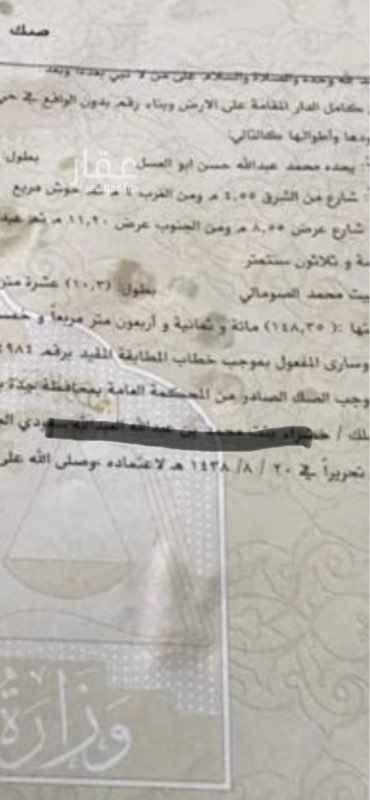 صك
لله وحده والصلاة والسلام على من لا نبي بعده، وبعد
كامل الدار المقامة على الارض وبناء رقم بدون الواقع في حي
ودها وأطوالها كالتالي:
يحده محمد عبدالله حسن ابو العسل بطول:
شارع من الشرق ٤,٥٥ م ومن الغرب ٤ م ثم حوش مربع
شارع عرض ٨,٥٥ م ومن الجنوب عرض ١١,٢٠ م ثم عبد
ة و ثلاثون سنتمتر
يت محمد الصومالي بطول: (١٠,٣) عشرة متر
تها :( ١٤٨,٣٥) مائة و ثمانية و أربعون متر مربعاً و خمسة
وسارى المفعول بموجب خطاب المطابقة المقيد برقم ٤٩٨٤
وجب الصك الصادر من المحكمة العامة بمحافظة جدة
لك / سعودي الج
تحريراً في ٢٠ / ٨ / ١٤٣٨ هـ لاعتماده ،وصلى الله على
وزارة
عقار